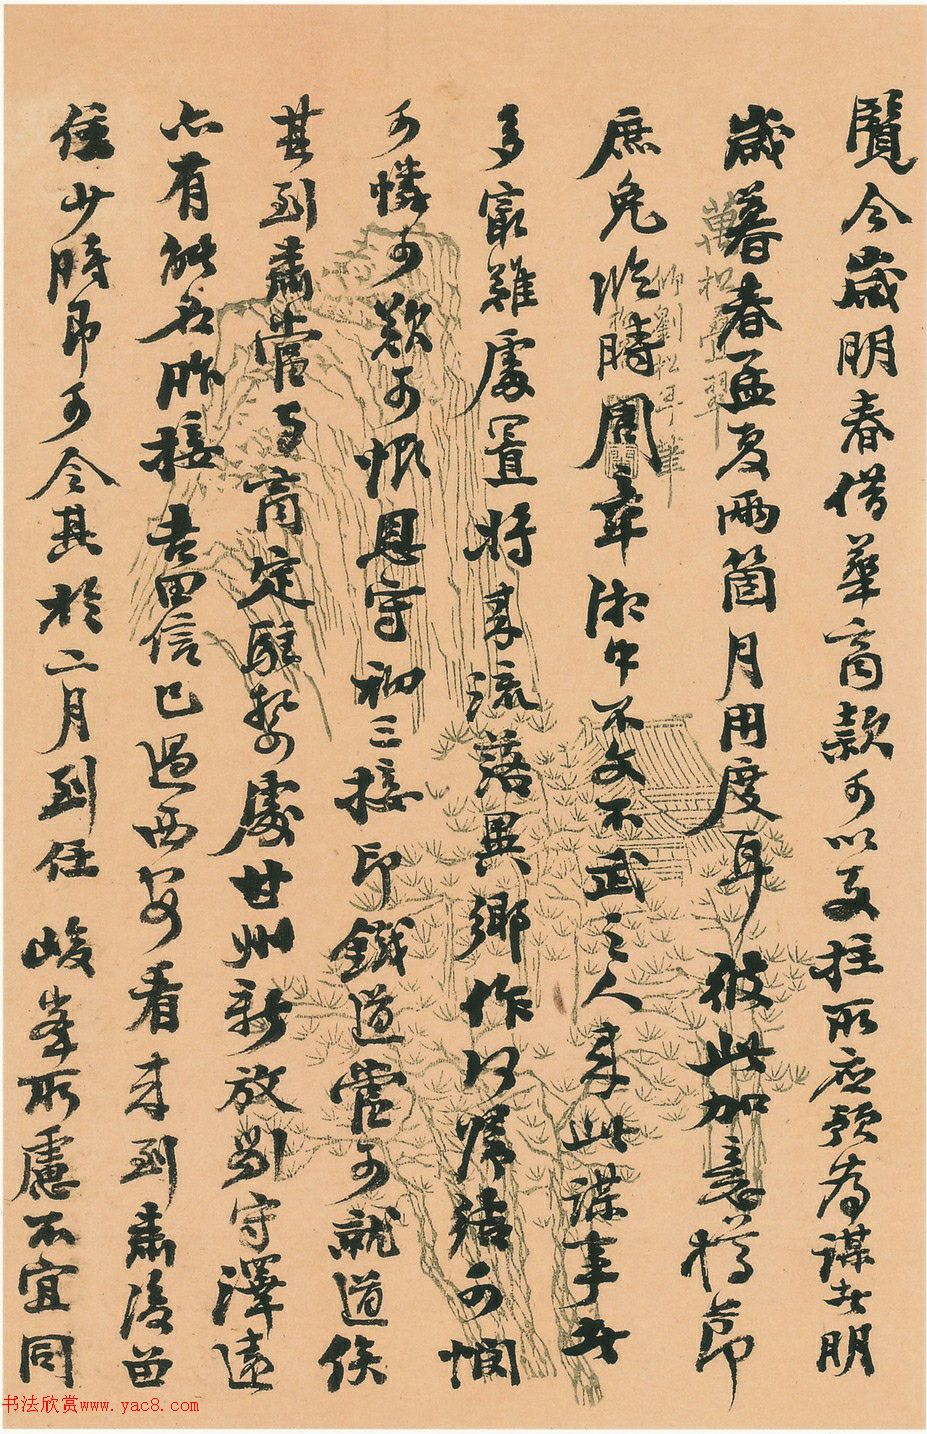 覽今歲明春借華商款可以支拄所應預為謀者明
歲暮春孟夏兩箇月用度耳 彼此加意撙節
庶免臨時周章湘中不文不武之人來此謀事者
多最難處置將來流落異鄉作何歸結可憫
可憐可歎可恨恩守初三接印鐵道當可就道俟
其到肅當與商定駐紮處甘州新放劉守澤遠
亦有能名昨接 吉田信已過西安看來到肅後留
住少時即可令其於二月到任 峻峯所慮不宜同
萬松疊翠
仿劉松年筆
书法欣赏www.yac8.com